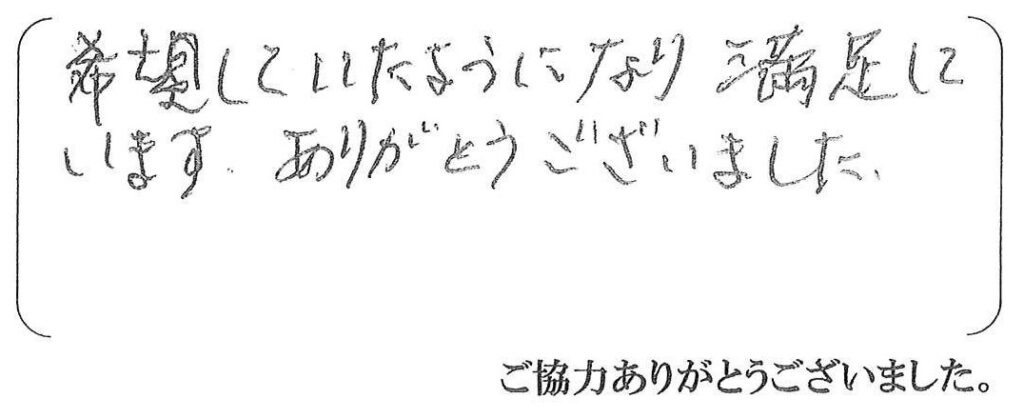 希望していたようになり 満足して
います. ありがとうございました.
ご協力ありがとうございました。